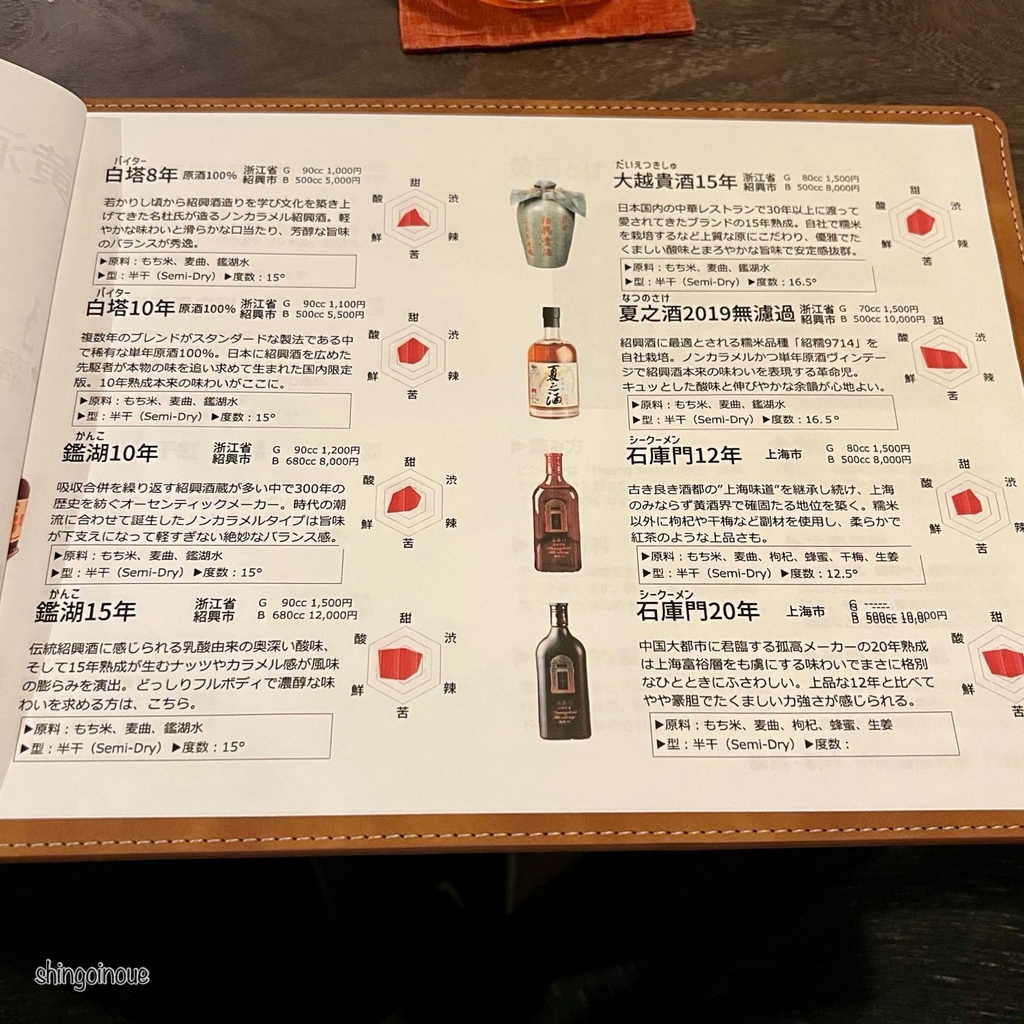 バイター
白塔8年 原酒100% 浙江省 紹興市 G 90cc 1,000円 B 500cc 5,000円
若かりし頃から紹興酒造りを学び文化を築き上
げてきた名杜氏が造るノンカラメル紹興酒。軽
やかな味わいと滑らかな口当たり、芳醇な旨味
のバランスが秀逸。
▶原料：もち米、麦曲、鑑湖水
▶型：半干（Semi-Dry） ▶度数：15°
甜
酸 渋
鮮 辣
苦
バイター
白塔10年 原酒100% 浙江省 紹興市 G 90cc 1,100円 B 500cc 5,500円
複数年のブレンドがスタンダードな製法である中
で稀有な単年原酒100%。日本に紹興酒を広めた
先駆者が本物の味を追い求めて生まれた国内限定
版。10年熟成本来の味わいがここに。
▶原料：もち米、麦曲、鑑湖水
▶型：半干（Semi-Dry） ▶度数：15°
甜
酸 渋
鮮 辣
苦
かんこ
鑑湖10年 浙江省 紹興市 G 90cc 1,200円 B 680cc 8,000円
吸収合併を繰り返す紹興酒蔵が多い中で300年の
歴史を紡ぐオーセンティックメーカー。時代の潮
流に合わせて誕生したノンカラメルタイプは旨味
が下支えになって軽すぎない絶妙なバランス感。
▶原料：もち米、麦曲、鑑湖水
▶型：半干（Semi-Dry） ▶度数：15°
甜
酸 渋
鮮 辣
苦
かんこ
鑑湖15年 浙江省 紹興市 G 90cc 1,500円 B 680cc 12,000円
伝統紹興酒に感じられる乳酸由来の奥深い酸味、
そして15年熟成が生むナッツやカラメル感が風味
の膨らみを演出。どっしりフルボディで濃醇な味
わいを求める方は、こちら。
▶原料：もち米、麦曲、鑑湖水
▶型：半干（Semi-Dry） ▶度数：15°
甜
酸 渋
鮮 辣
苦
だいえつきしゅ
大越貴酒15年 浙江省 紹興市 G 80cc 1,500円 B 500cc 8,000円
日本国内の中華レストランで30年以上に渡って
愛されてきたブランドの15年熟成。自社で糯米
を栽培するなど上質な原にこだわり、優雅でた
くましい酸味とまろやかな旨味で安定感抜群。
▶原料：もち米、麦曲、鑑湖水
▶型：半干（Semi-Dry） ▶度数：16.5°
甜
酸 渋
鮮 辣
苦
なつのさけ
夏之酒2019無濾過 浙江省 紹興市 G 70cc 1,500円 B 500cc 10,000円
紹興酒に最適とされる糯米品種「紹糯9714」を
自社栽培。ノンカラメルかつ単年原酒ヴィンテー
ジで紹興酒本来の味わいを表現する革命児。
キュッとした酸味と伸びやかな余韻が心地よい。
▶原料：もち米、麦曲、鑑湖水
▶型：半干（Semi-Dry） ▶度数：16.5°
甜
酸 渋
鮮 辣
苦
夏之酒
シークーメン
石庫門12年 上海市 G 80cc 1,500円 B 500cc 8,000円
古き良き酒都の”上海味道”を継承し続け、上海
のみならず黄酒界で確固たる地位を築く。糯米
以外に枸杞や干梅など副材を使用し、柔らかで
紅茶のような上品さも。
▶原料：もち米、麦曲、枸杞、蜂蜜、干梅、生姜
▶型：半干（Semi-Dry） ▶度数：12.5°
甜
酸 渋
鮮 辣
苦
シークーメン
石庫門20年 上海市 G
中国大都市に君臨する孤高メーカーの20年熟成
は上海富裕層をも虜にする味わいでまさに格別
なひとときにふさわしい。上品な12年と比べて
やや豪胆でたくましい力強さが感じられる。
▶原料：もち米、麦曲、枸杞、蜂蜜、生姜
▶型：半干（Semi-Dry） ▶度数：
甜
酸
鮮
苦
shingoinoue